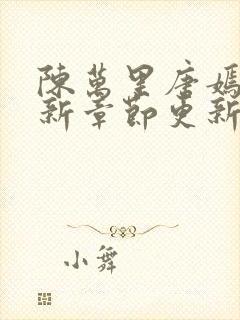 陳萬里唐嫣
新章節更新
小舞